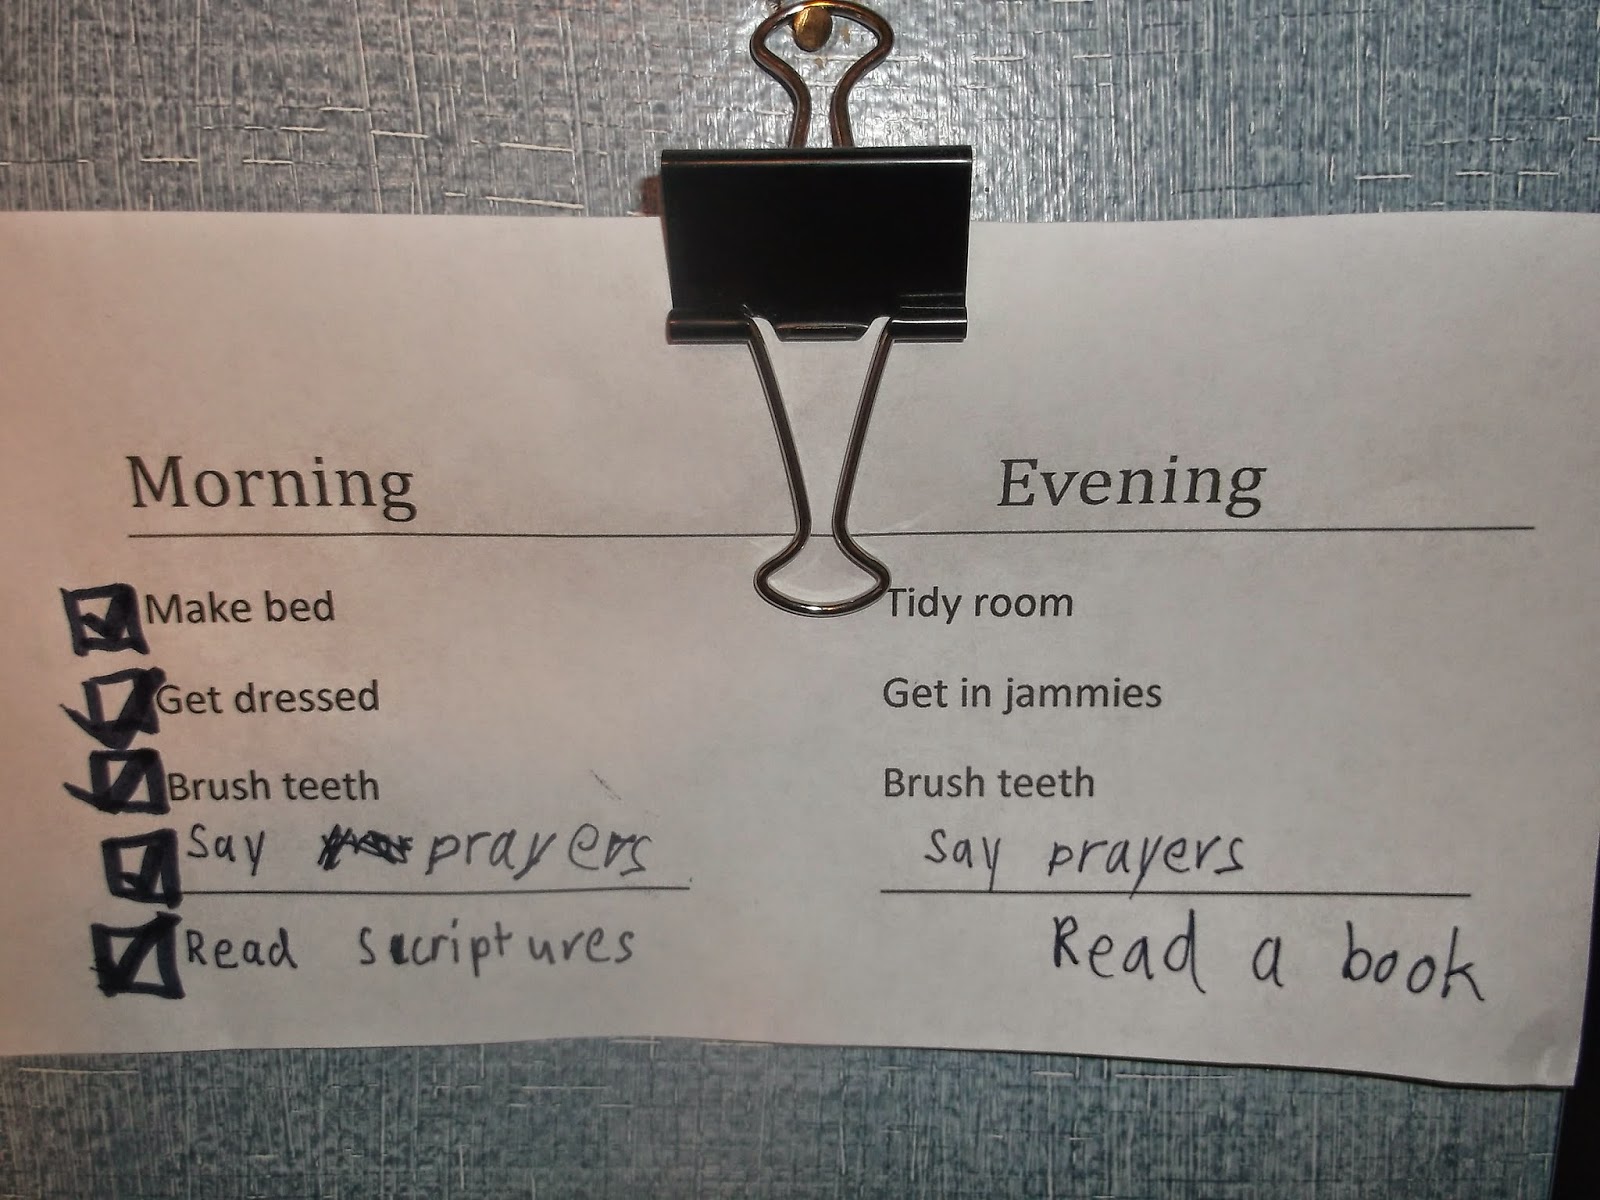 Morning
Evening
Make bed
Tidy room
Get dressed
Get in jammies
Brush teeth
Brush teeth
Say prayers
Say prayers
Read scriptures
Read a book